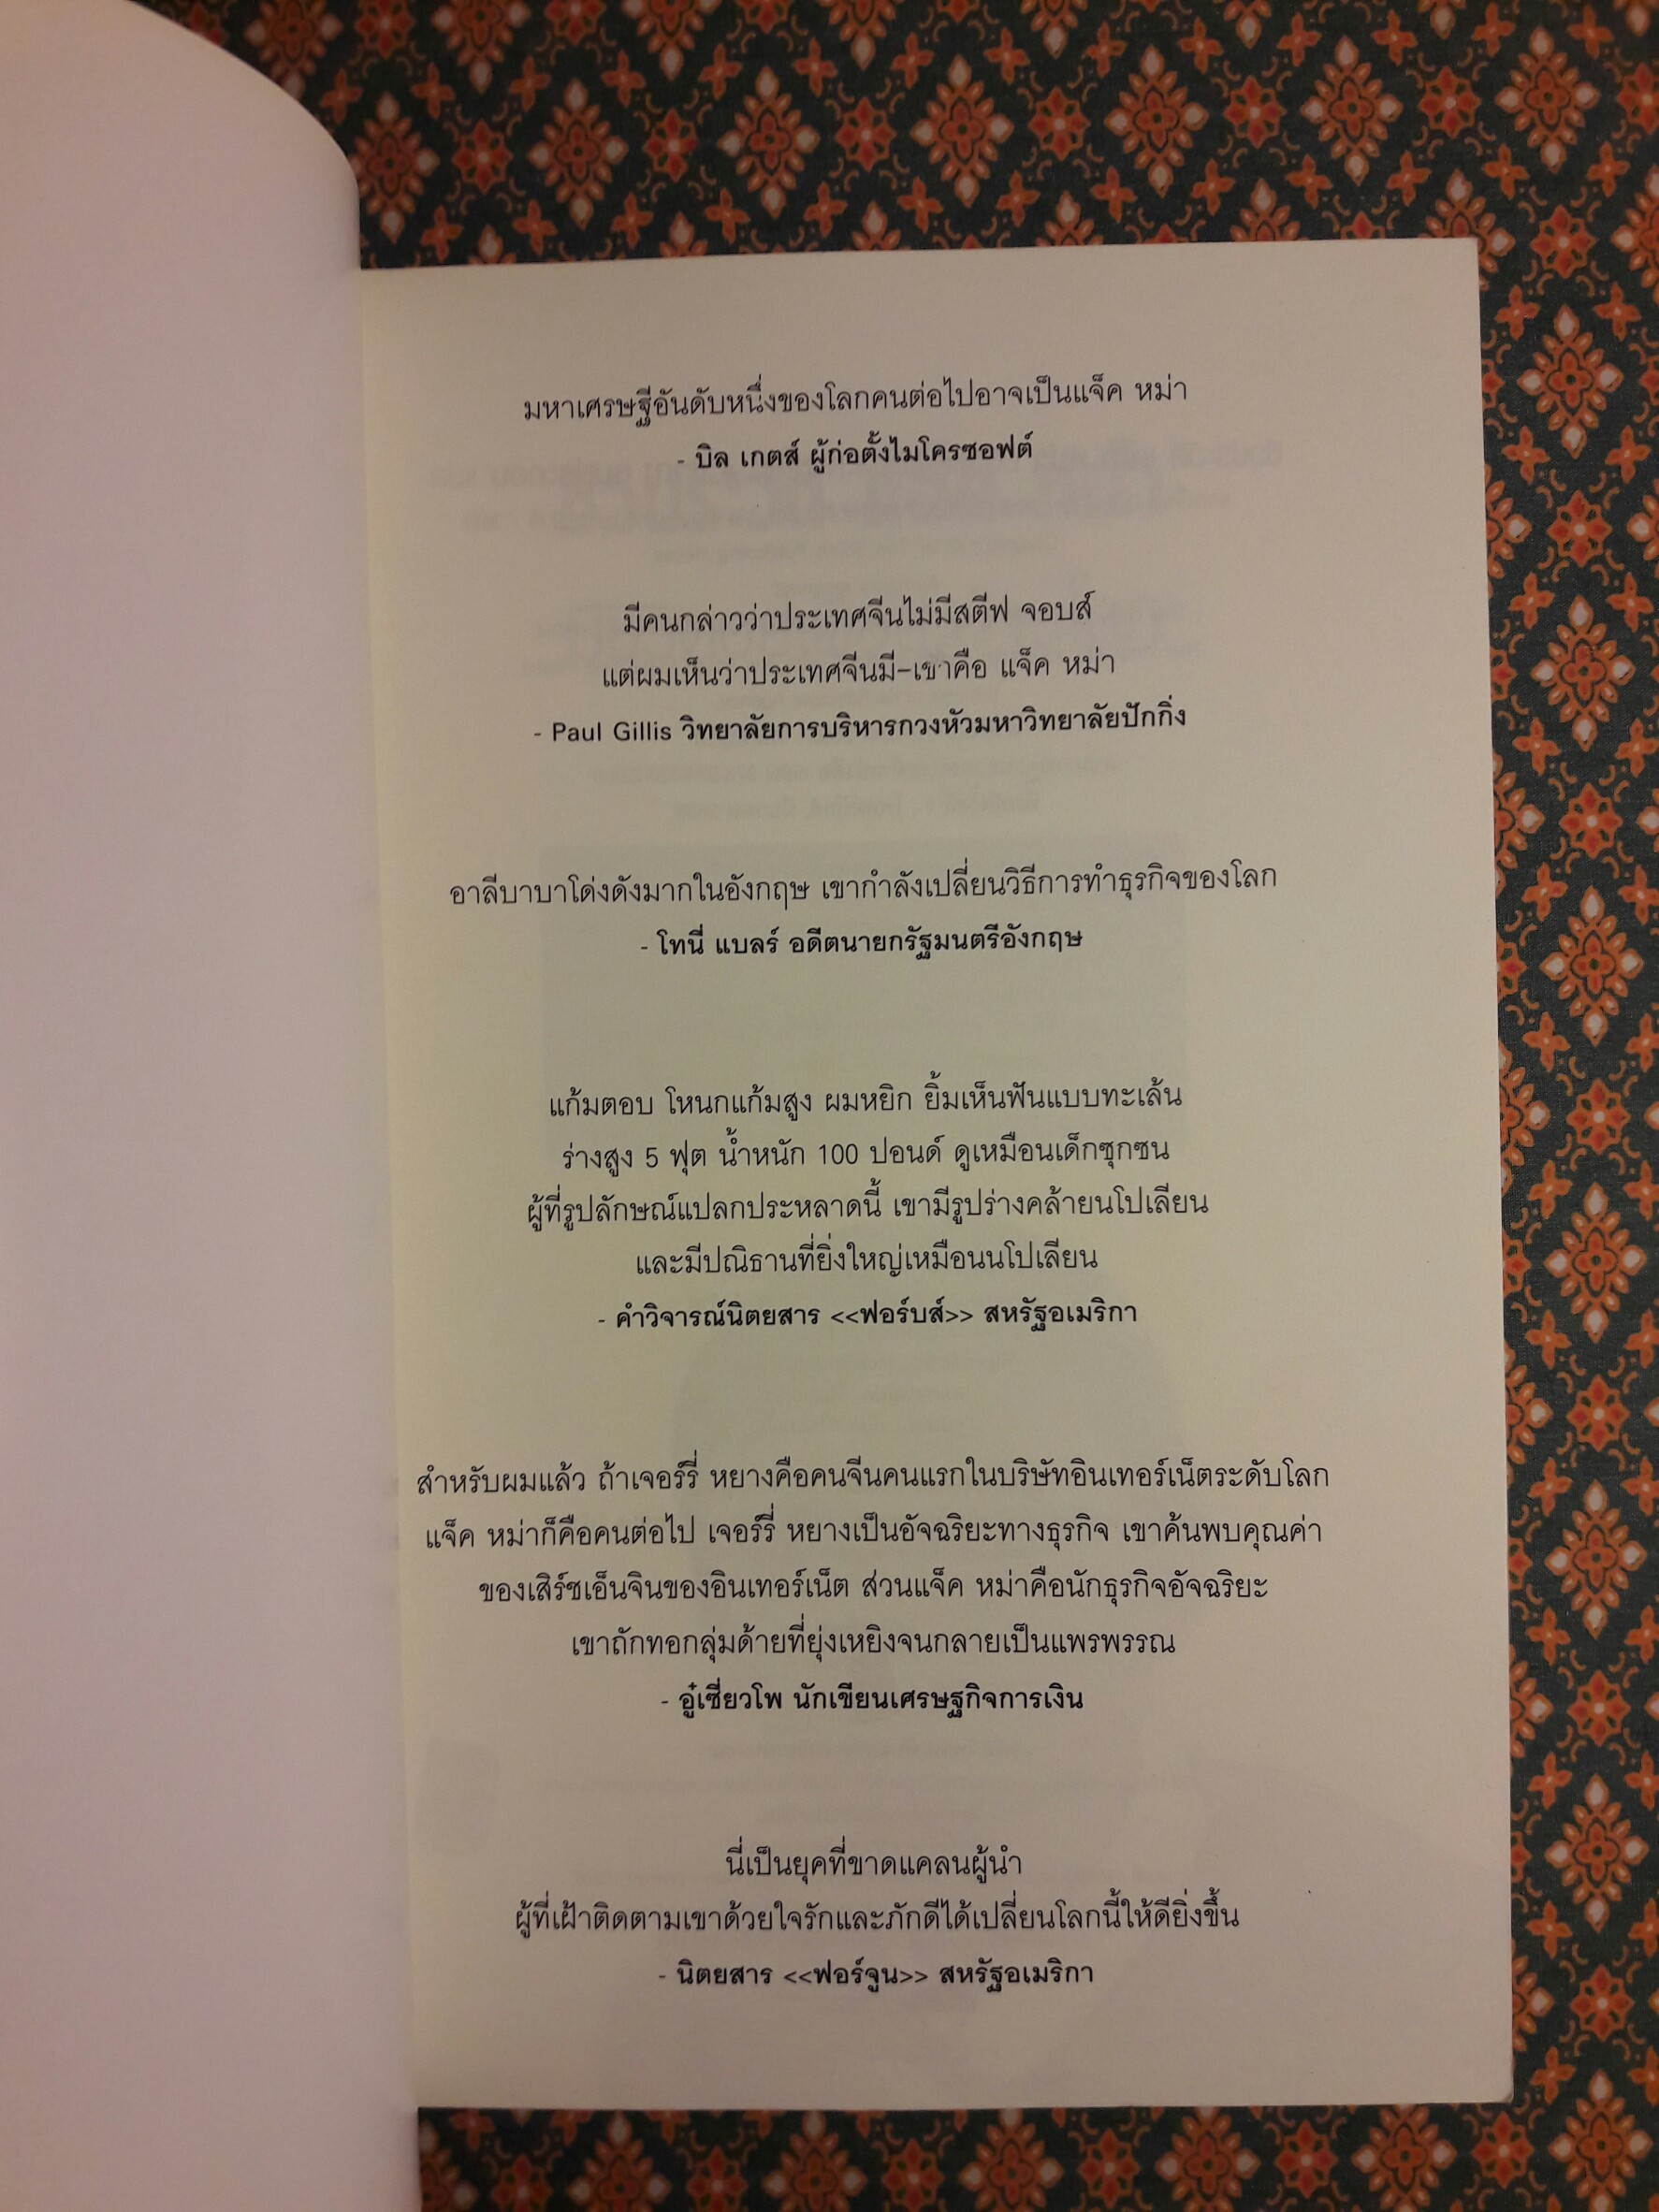 มหาเศรษฐีอันดับหนึ่งของโลกคนต่อไปอาจเป็นแจ็ค หม่า
- บิล เกตส์ ผู้ก่อตั้งไมโครซอฟต์
มีคนกล่าวว่าประเทศจีนไม่มีสตีฟ จอบส์
แต่ผมเห็นว่าประเทศจีนมี-เขาคือ แจ็ค หม่า
- Paul Gillis วิทยาลัยการบริหารกวงหัวมหาวิทยาลัยปักกิ่ง
อาลีบาบาโด่งดังมากในอังกฤษ เขากำลังเปลี่ยนวิธีการทำธุรกิจของโลก
- โทนี่ แบลร์ อดีตนายกรัฐมนตรีอังกฤษ
แก้มตอบ โหนกแก้มสูง ผมหยิก ยิ้มเห็นฟันแบบทะเล้น
ร่างสูง 5 ฟุต น้ำหนัก 100 ปอนด์ ดูเหมือนเด็กซุกซน
ผู้ที่รูปลักษณ์แปลกประหลาดนี้ เขามีรูปร่างคล้ายนโปเลียน
และมีปณิธานที่ยิ่งใหญ่เหมือนนโปเลียน
- คำวิจารณ์นิตยสาร <<ฟอร์บส์>> สหรัฐอเมริกา
สำหรับผมแล้ว ถ้าเจอร์รี่ หยางคือคนจีนคนแรกในบริษัทอินเทอร์เน็ตระดับโลก
แจ็ค หม่าก็คือคนต่อไป เจอร์รี่ หยางเป็นอัจฉริยะทางธุรกิจ เขาค้นพบคุณค่า
ของเสิร์ชเอ็นจินของอินเทอร์เน็ต ส่วนแจ็ค หม่าคือนักธุรกิจอัจฉริยะ
เขาถักทอกลุ่มด้ายที่ยุ่งเหยิงจนกลายเป็นแพรพรรณ
- อู๋เซี่ยวโพ นักเขียนเศรษฐกิจการเงิน
นี่เป็นยุคที่ขาดแคลนผู้นำ
ผู้ที่เฝ้าติดตามเขาด้วยใจรักและภักดีได้เปลี่ยนโลกนี้ให้ดียิ่งขึ้น
- นิตยสาร <<ฟอร์จูน>> สหรัฐอเมริกา